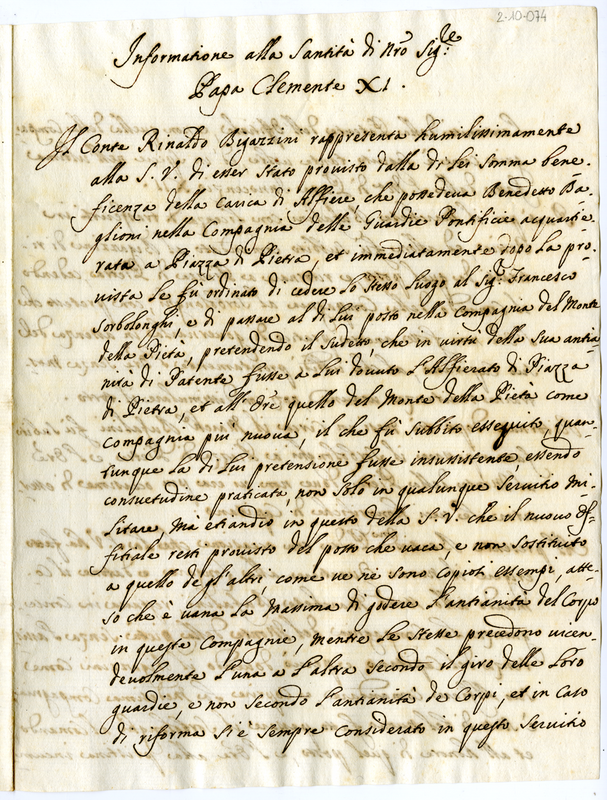 2-10-074
Informatione alla Santità di Nro Sigre
Papa Clemente XI.
Il Conte Rinaldo Bigazzini rappresenta humilissimamente
alla S. V. di esser stato provisto dalla di lei somma bene-
ficenza della carica di Alfiere, che possedeva Benedetto Ba-
glioni nella Compagnia delle Guardie Pontificie acquartie-
rata a Piazza di Pietra, et immediatamente dopo la pro-
vista le fù ordinato di cedere lo stesso luogo al Sigr Francesco
Sorbolonghi, e di passare al di lui posto nella Compagnia del Monte
della Pietà, pretendendo il sudetto, che in virtù della sua antia-
nità di Patente fusse a lui dovuto l'Alfierato di Piazza
di Pietra, et all'Ore quello del Monte della Pietà come
Compagnia più nuova, il che fù subbito esseguito, quan-
tunque la di lui pretensione fusse insussistente, essendo
consuetudine praticata, non solo in qualunque servitio mi-
litare, mà etiandio in questo della S. V. che il nuovo Of-
fitiale resti provisto del posto che vaca, e non sostituito
a quello degl'altri, come ve ne sono copiosi essempi, atte-
so che è vana la massima di godere l'antianità del Corpo
in queste Compagnie, mentre le stesse precedono vicen-
devolmente l'una a l'altra secondo il giro delle loro
guardie, e non secondo l'antianità de Corpi, et in caso
di riforma si è sempre considerato in questo servitio